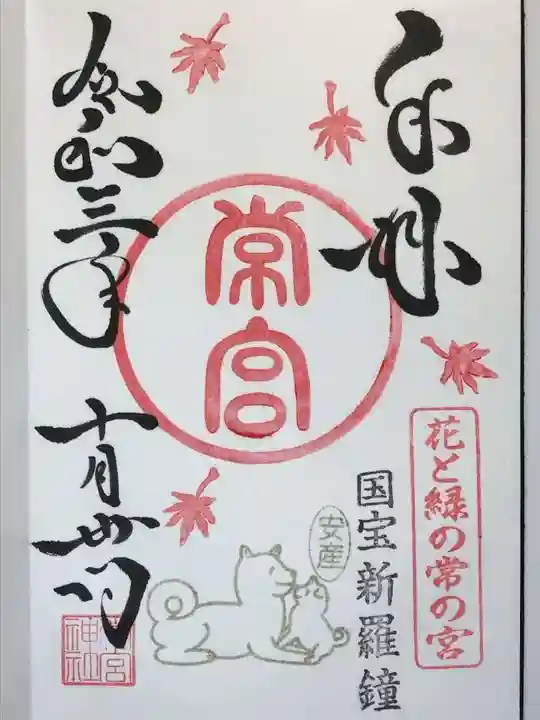 奉拝
常宮
花と緑の常の宮
国宝新羅鐘
安産
令和三年
十月卅一日
常宮神社